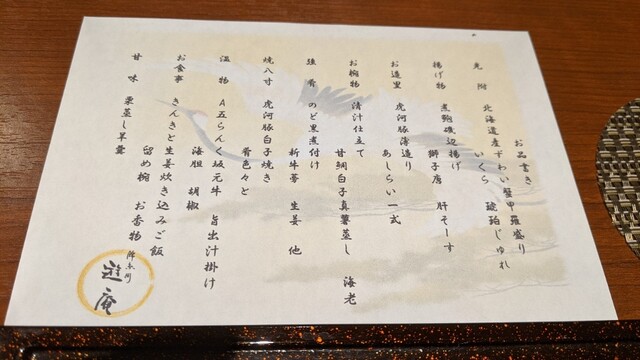 お品書き
先附 北海道産ずわい蟹甲羅盛り
いくら 琥珀じゅれ
揚げ物 煮鮑磯辺揚げ
獅子唐 肝そーす
お造里 虎河豚薄造り
あしらい一式
お椀物 清汁仕立て
甘鯛白子真薯蒸し 海老
強肴 のど黒煮付け
新牛蒡 生姜 他
焼八寸 虎河豚白子焼き
肴色々と
温物 A五らんく坂元牛 旨出汁掛け
海胆 胡椒
お食事 きんきと生姜炊き込みご飯
留め椀 お香物
甘味 栗蒸し羊羹
遊庵